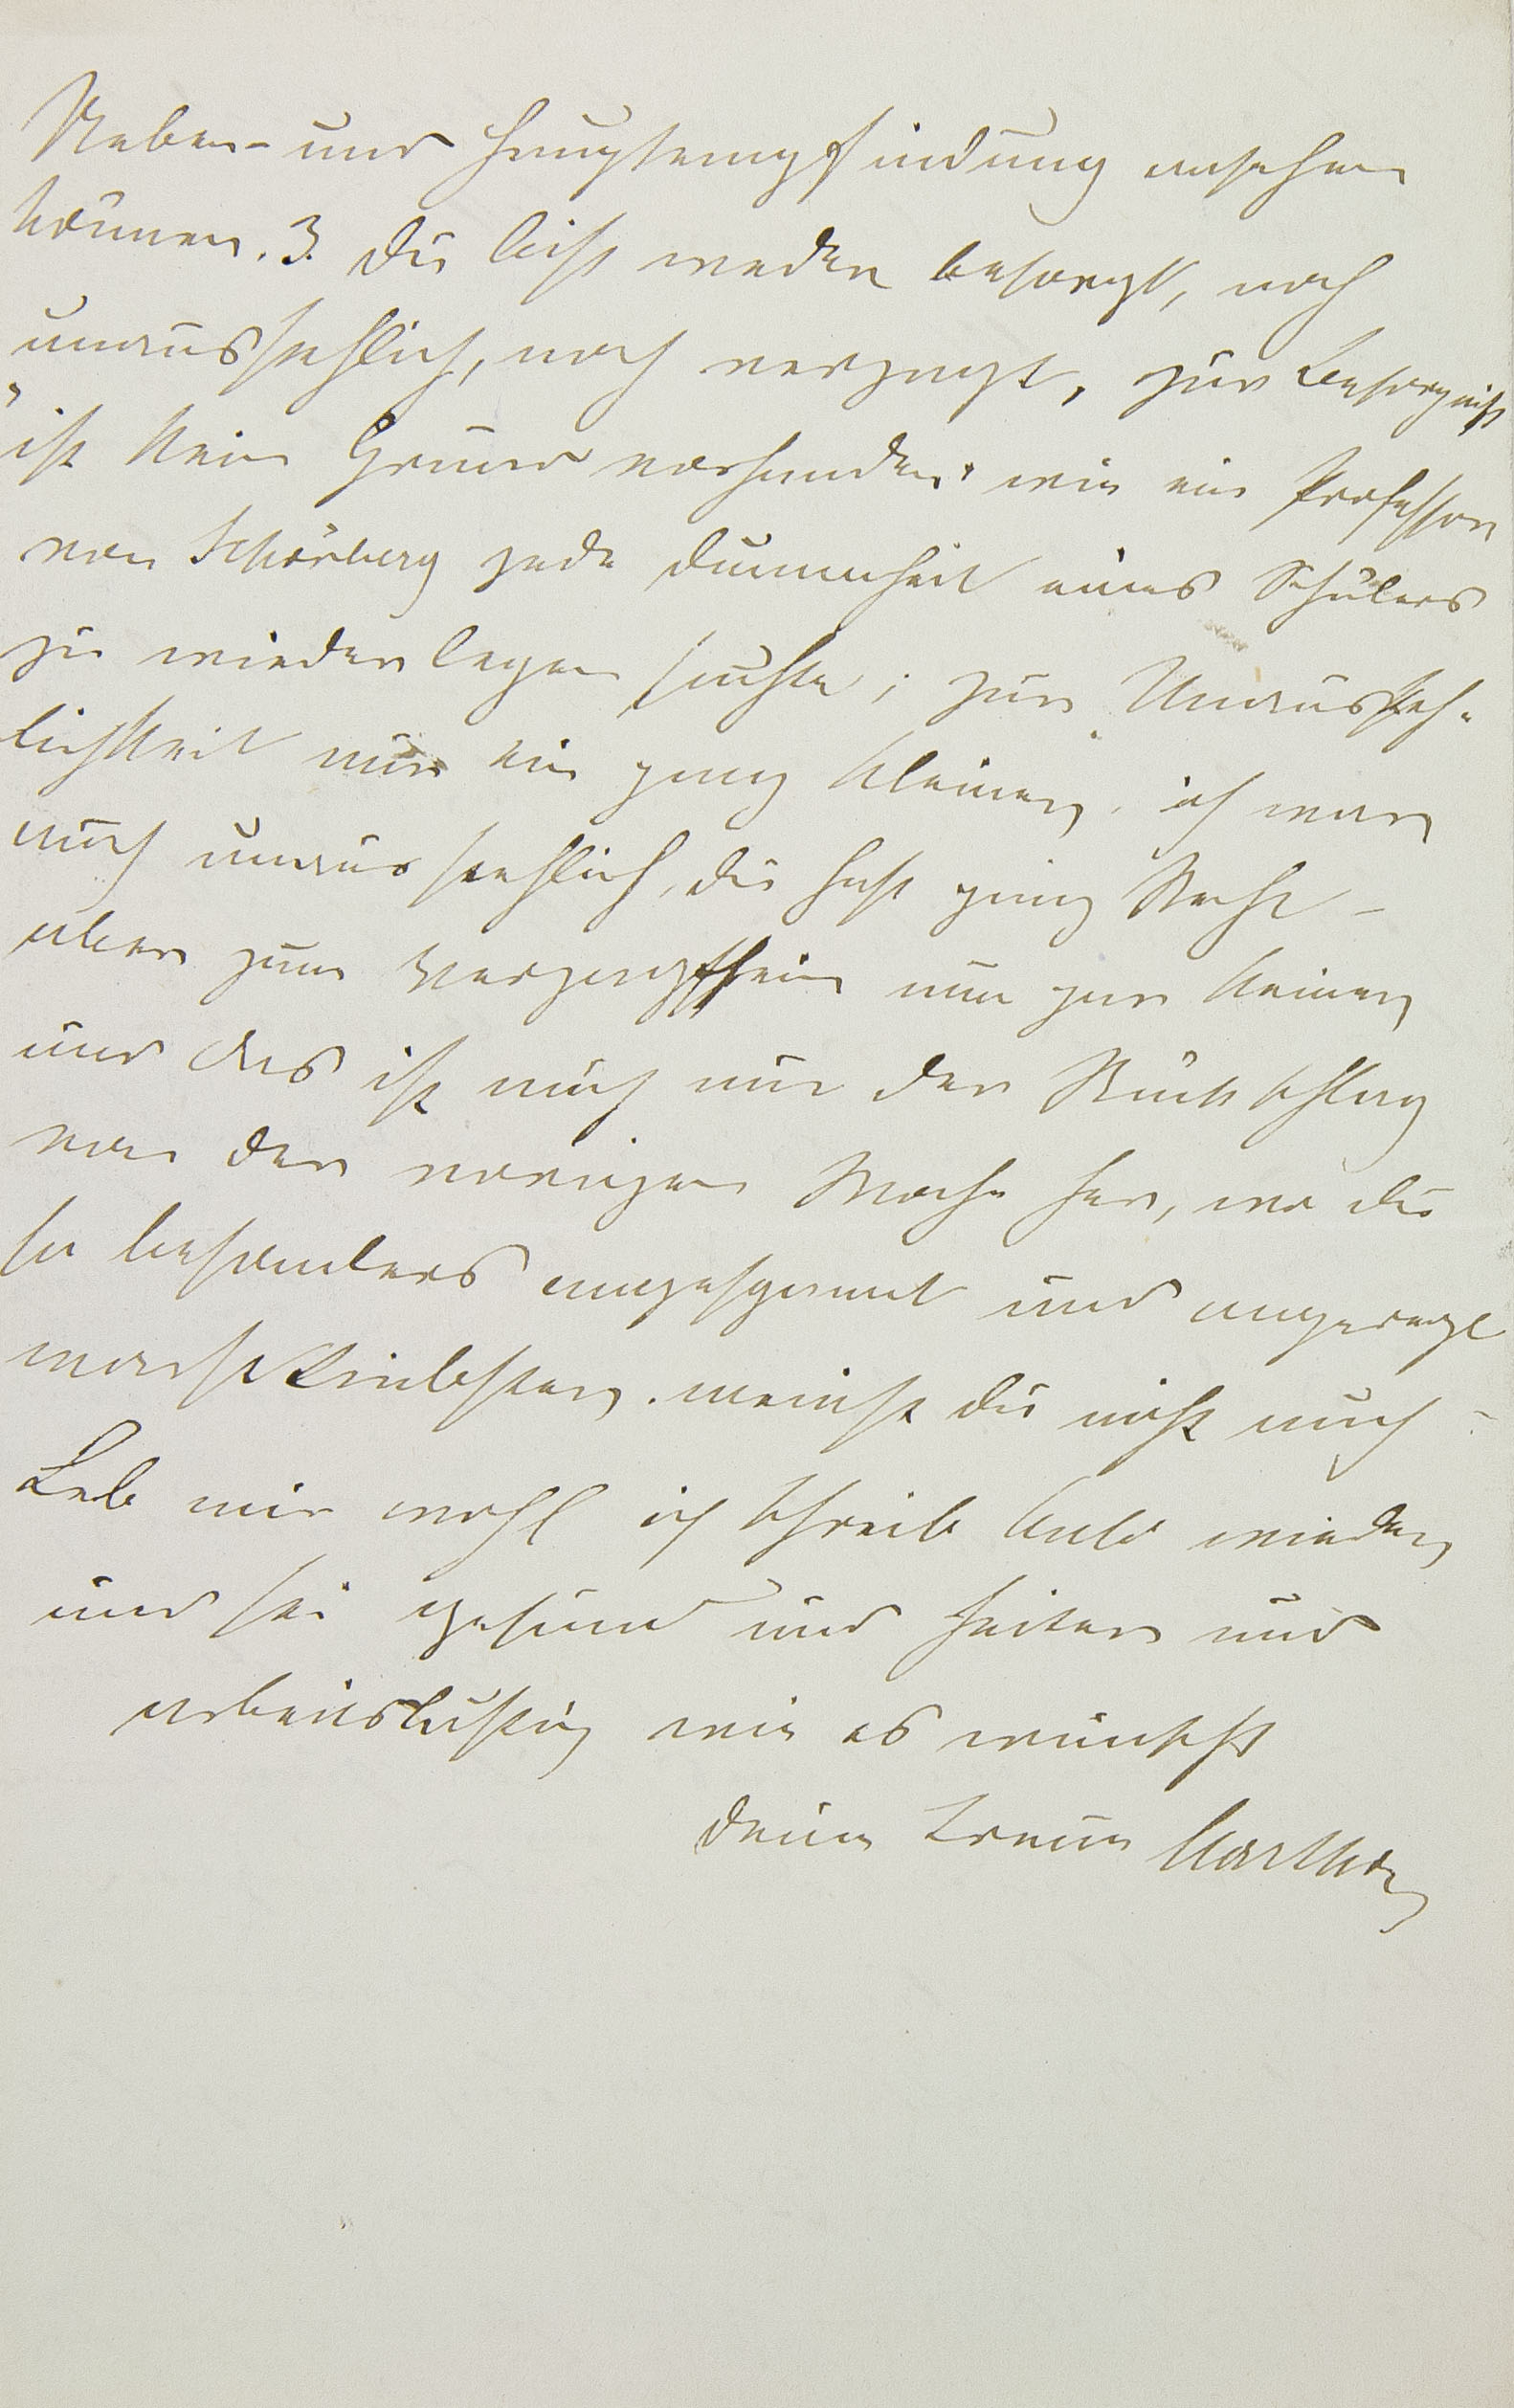 Neben- und Hauptempfindung ansehen
können. 3. Du bist weder besorgt, noch
unausstehlich, noch verzagt, zur Besorgniß
„ist kein Grund vorhanden“ wie ein Professor
von Schönberg jede Dummheit eines Schülers
zu wiederlegen suchte; zur Unaussteh-
lichkeit nur ein ganz kleiner, ich war
auch unausstehlich, du hast ganz Recht –
aber zum Verzagtsein nun gar keiner
und das ist auch nur der Rückschlag
von der vorigen Woche her, wo du
so besonders angespannt und angeregt
warst Liebster. meinst du nicht auch –
Leb mir wohl ich schreib bald wieder
und sei gesund und heiter und
arbeitslustig wie es wünscht
deine treue Martha